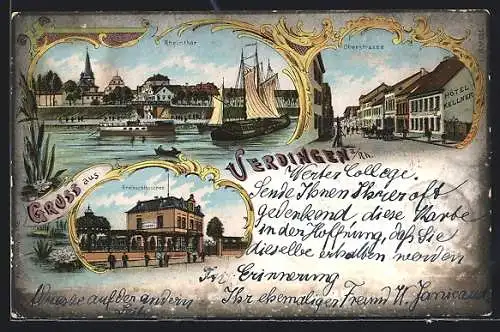 Rheinthor
Oberstrasse
HOTEL
KELLNER
GRUSS aus
UERDINGEN a/Rh.
Werter College.
Sende Ihnen Ihrer oft
gedenkend, diese Karte
in der Hoffnung, daß Sie
dieselbe erhalten werden
Zur Erinnerung
Ihr ehemaliger Freund K.
auf der andern